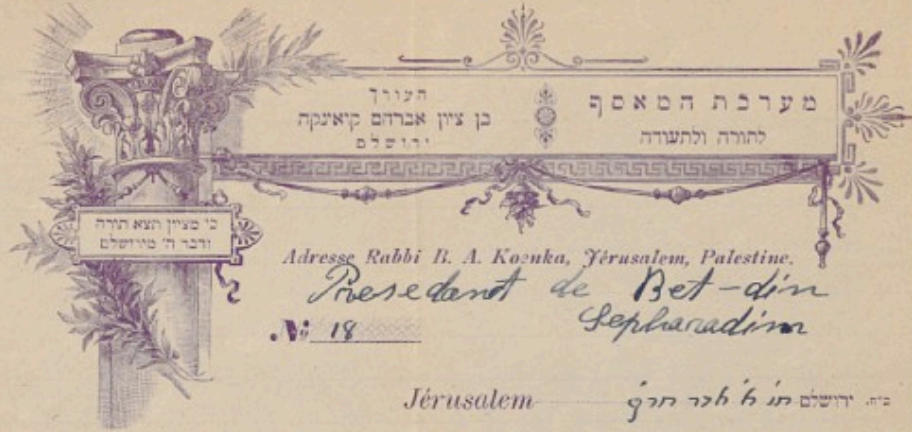 מערכת המאסף
לתורה ולתעודה
העורך
בן ציון אברהם קואינקה
ירושלם
כי מציון תצא תורה
ודבר ה' מירושלם
Adresse Rabbi B. A. Koenka, Jérusalem, Palestine.
Presedant de Bet-din
Sepharadim
№ 18
Jérusalem
ב"ה. ירושלם